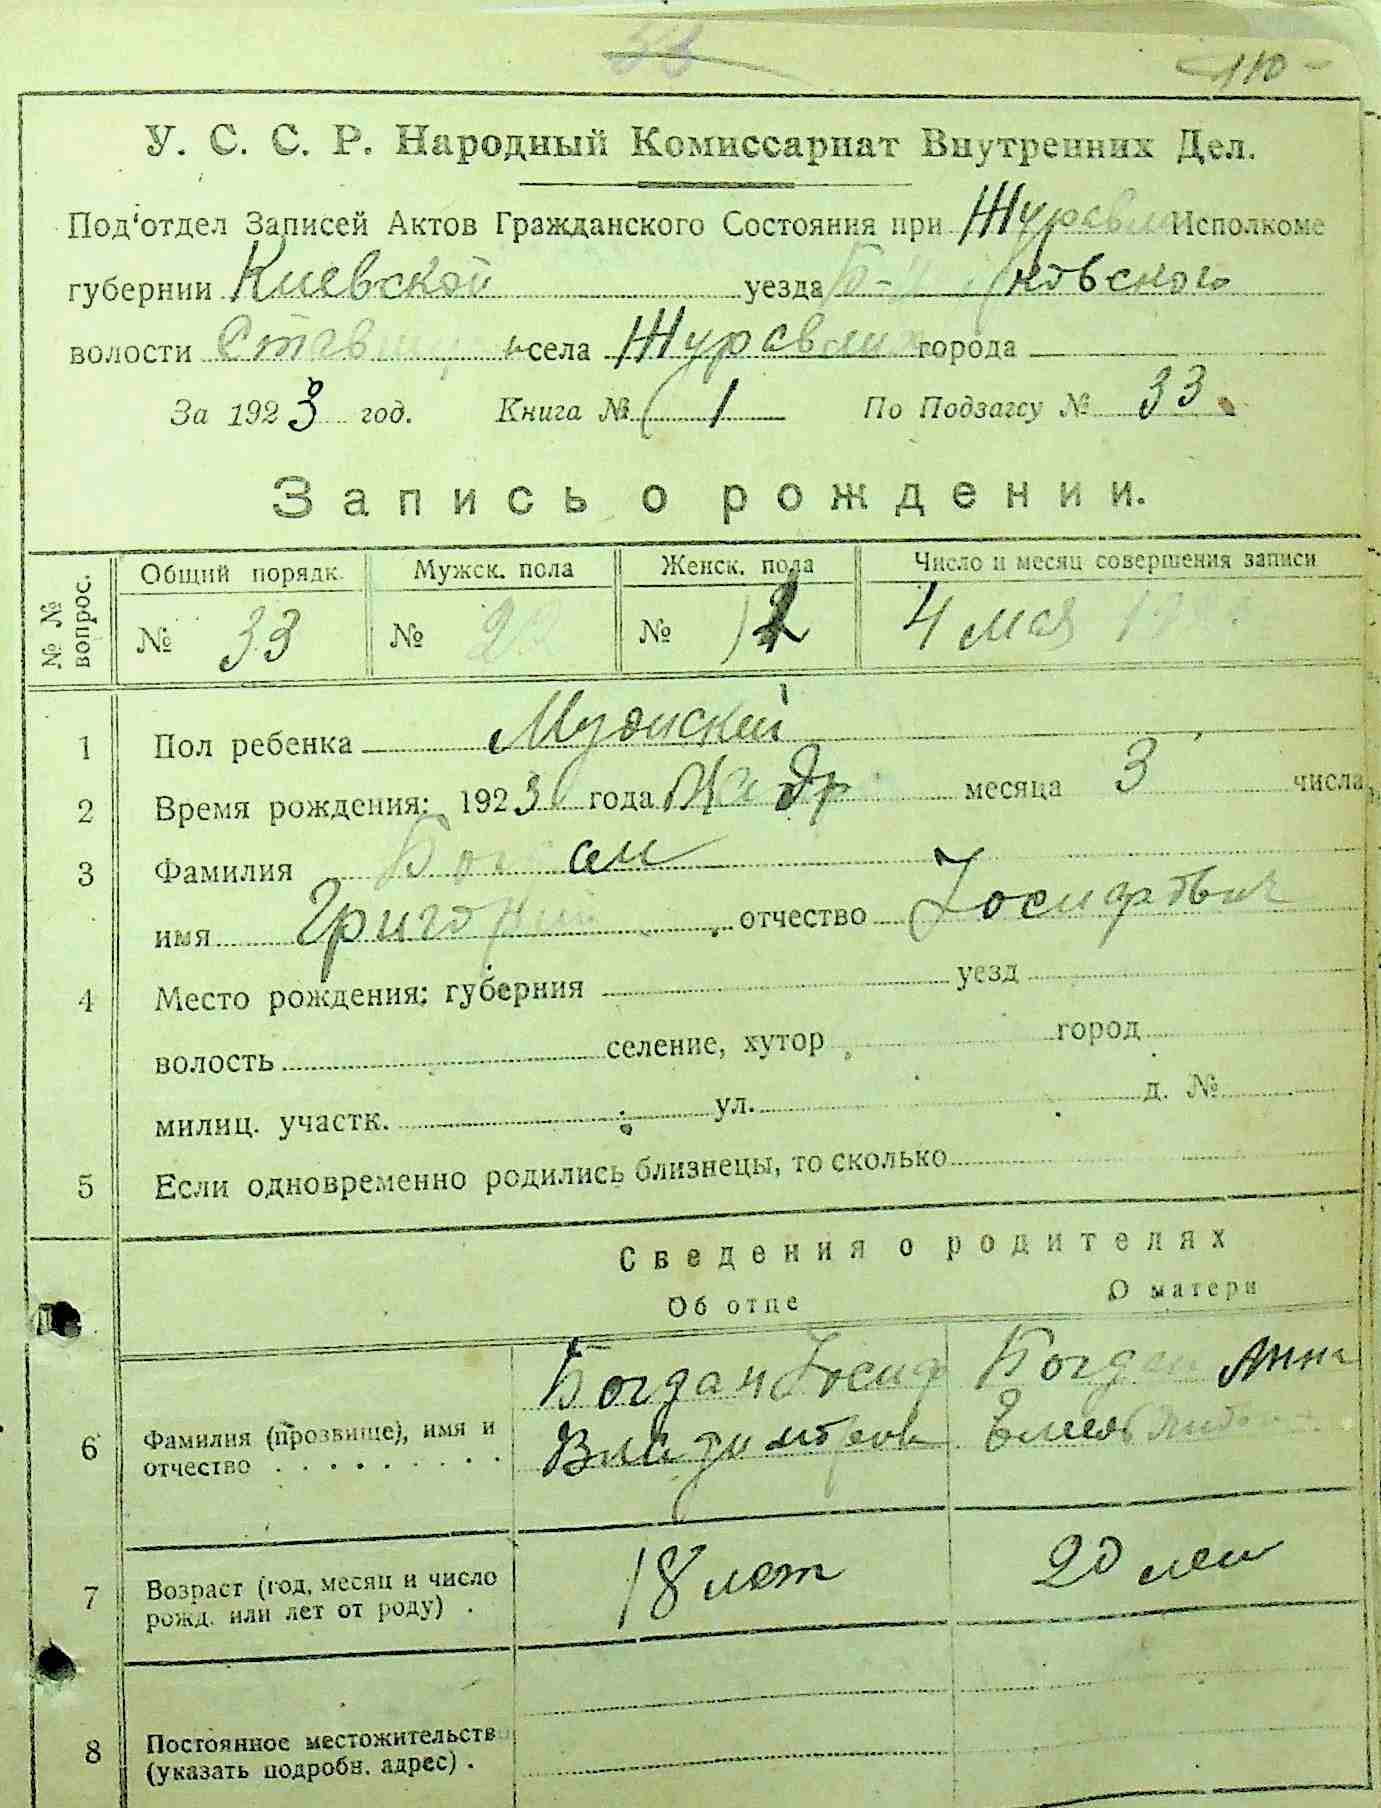 33
110
У. С. С. Р. Народный Комиссариат Внутренних Дел.
Под‘отдел Записей Актов Гражданского Состояния при Исполкоме
губернии Киевской уезда
волости села города
За 1923 год. Книга № 1 По Подзагсу № 33.
Запись о рождении.
№ № вопрос. Общий порядк. Мужск. пола Женск. пола Число и месяц совершения записи
№ 33 № 22 № 4 мая
1 Пол ребенка Мужский
2 Время рождения: 1923 года месяца 3 числа
3 Фамилия Богдан
имя Григорий отчество Іосифович
4 Место рождения: губерния уезд
волость селение, хутор город
милиц. участк. ул. д. №
5 Если одновременно родились близнецы, то сколько
Сведения о родителях
Об отце О матери
Богдан Іосиф Богдан Анна
6 Фамилия (прозвище), имя и
отчество . . . . . . . . .
7 Возраст (год, месяц и число 18 лет 20 лет
рожд. или лет от роду) .
8 Постоянное местожительств
(указать подробн. адрес) .